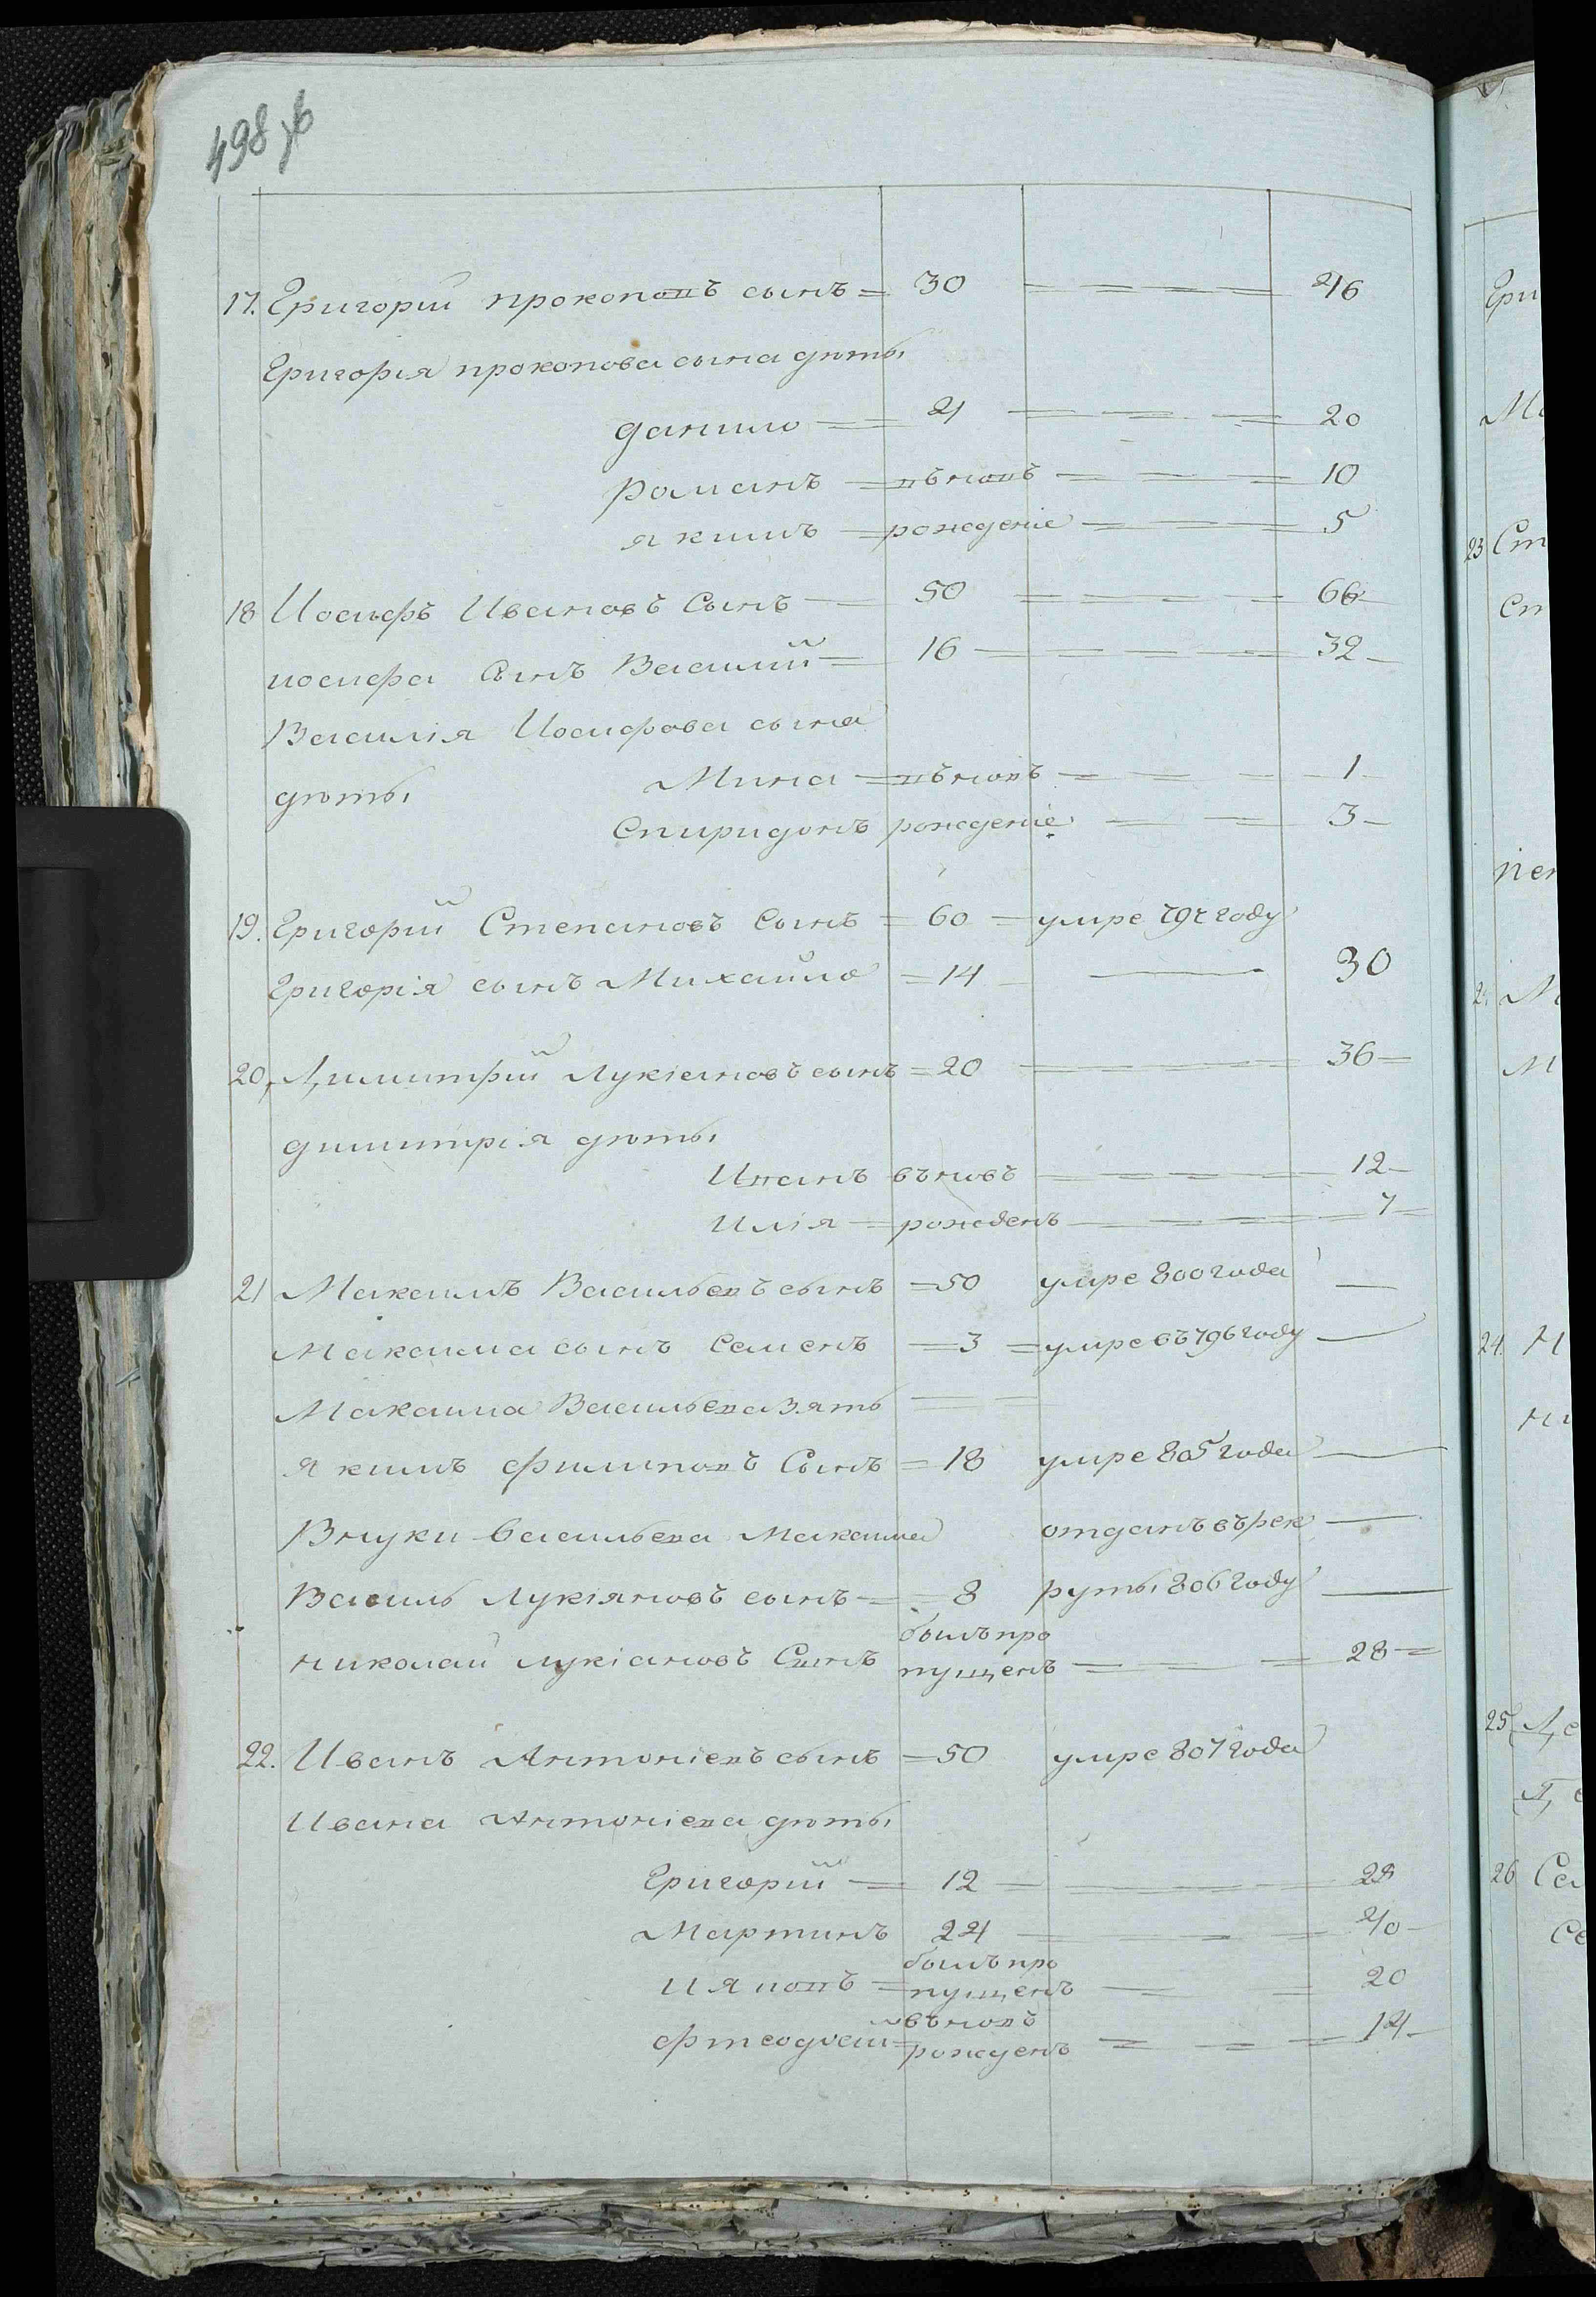 498 об
17. Григорий прокоповъ сынъ = 30 = = = = 46
Григория прокопова сына дѣты
данило = 4 = = = 20
романъ = въновъ = = = 10
якимъ = рождение = = = 5
18 Иосифъ Ивановъ Сынъ 50 = = = = 66
иосифа Сынъ Василий = 16 = = = 32
Василия Иосифова сына
дѣты Мина = въновъ = = = 1
Спиридонъ рождение = = 3
19. Григорий Степановъ Сынъ = 60 = умре 797 году
Григорія сынъ Михайло = 14 — 30
20, Димитрий Лукіановъ сынъ = 20 = = = 36
димитрія дѣты
Иванъ въновъ = = = 12
Илія = рожденъ = = = 7
21 Максимъ Васильевъ сынъ = 50 умре 800 года —
Максима сынъ Семенъ = 3 = умре въ 796 году —
Максима Васильева зять =
якимъ филиповъ Сынъ = 18 умре 805 года —
Внуки Васильева Максима отданъ въ рек —
Василь Лукіяновъ сынъ = 8 руты 806 году —
николай лукіановъ Сынъ былъ про
пущенъ = = = 28 =
22. Иванъ Антоніевъ сынъ = 50 умре 807 года
Ивана Антоніева дѣты
Григорий = 12 = = = 28
Мартинъ 24 = = = 40
Ияковъ = былъ про
пущенъ = = 20
фтеодосий = въновъ
рожденъ = = = 14
23 Ст
24. Н
25 Де
26 Се